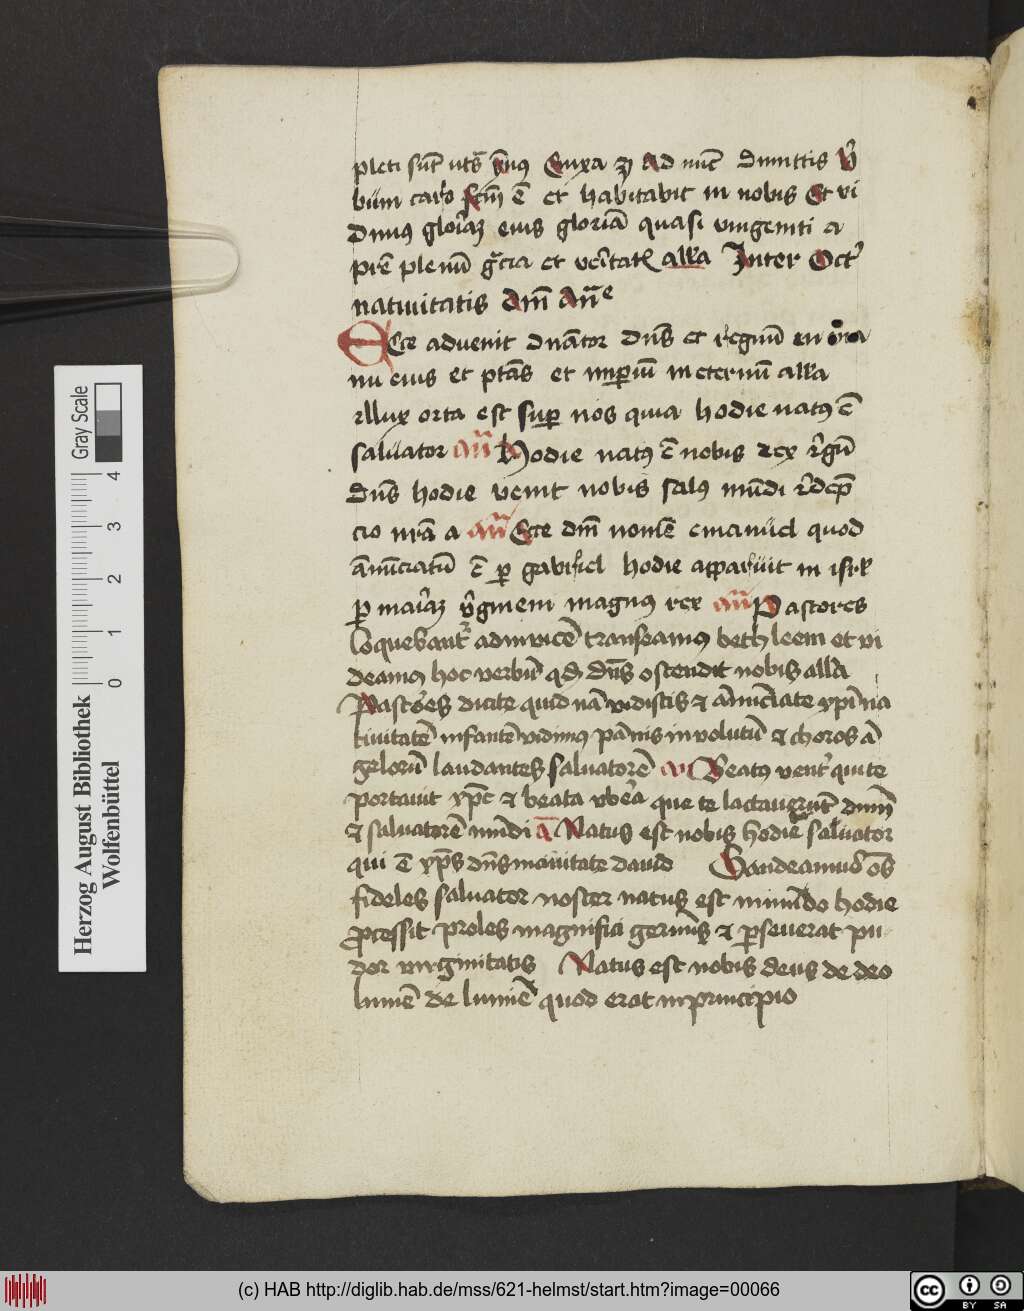 pleti sūt uts̄ v̄sus Cuixa ꝫ Ad nūc dimittis v̄
būm caro fcm̄ ē et habitabit in nobis Et vi
dimus gloīaꝫ eius gloriā quasi vnigeniti a
prē plenū gr̄cia et vēitatꝭ alla Inter Oct
natiuitatis dm̄ Añe
Ecce advenit dnātor dn̄s et regnū en
nu eius et ptās et impiū in eternū alla
illux orta est sup nos quia hodie natꝰ ē
saluator an̄ Hodie natꝰ ē nobis rex rgū
dn̄s hodie venit nobis salꝰ mūdi rdēp
cio nrā a an̄ Ecce dm̄ nomē emanuel quod
ānūciatū ē p gabriel hodie apparuit in isrl
p maīaꝫ vginem magnꝰ rex an̄ Pastores
loquebantr̄ adinvicē transeamꝰ bethleem et vi
deamꝰ hoc verbū qd dn̄s ostendit nobis alla
Pastoēs dicite quid nā vidistis ⁊ ānūciate xpī na
tiuitatē infantē vidimꝰ pānis involutū ⁊ choros ā
gelorū laudantes saluatorē an Beatꝰ ventr̄ qui te
portauit xpē ⁊ beata vbēa que te lactauerūt dnm̄
⁊ saluatorē mūdi ā Natus est nobis hodie saluator
qui ē xps̄ dn̄s in ciuitate dauid Gaudeamus ōs
fideles saluator noster natus est in mūdo hodie
processit proles magnifici germīs ⁊ pseuerat pu
dor virginitatis Natus est nobis deus de deo
lumē de lumīe quod erat in principio
Herzog August Bibliothek
Wolfenbüttel
Gray Scale
0 1 2 3 4
(c) HAB http://diglib.hab.de/mss/621-helmst/start.htm?image=00066
cc BY SA